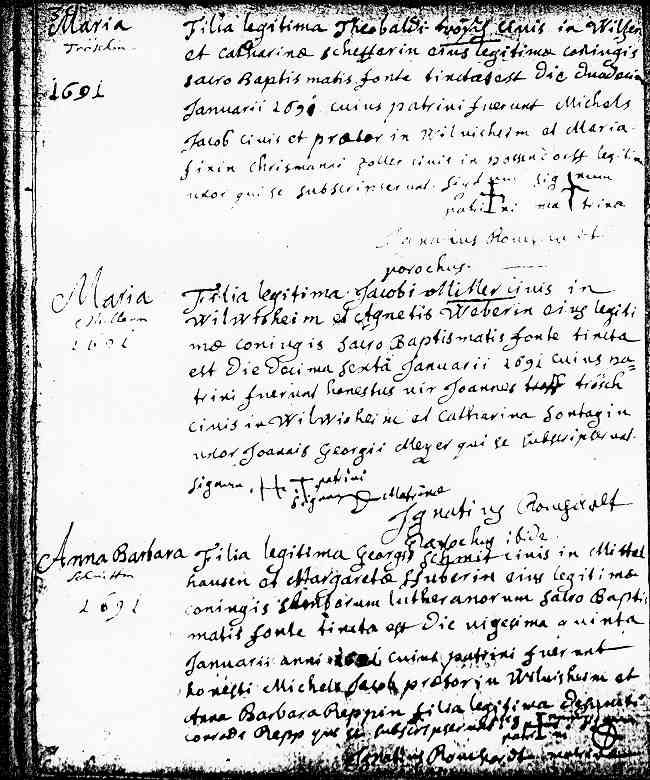 Maria
Tröschin
1691
Filia legitima Theobaldi trösch civis in Wilsen
et catharinæ schefferin eius legitimæ coniugis
sacro Baptismatis fonte tincta est die duodecima
Januarii 1691 cuius patrini fuerunt Michels
Jacob civis et prætor in Wilvisheim et Maria
fixin Chrismanni civis in legitima
uxor qui se subscripserunt. signum signum
patrini matrinæ
parochus.
Maria
Millerin
1691
Filia legitima Jacobi Miller civis in
Wilwisheim et Agnetis Weberin eius legiti
mæ coniugis sacro Baptismatis fonte tincta
est die decima sexta Januarii 1691 cuius pa-
trini fuerunt honestus vir Joannes trösch
civis in Wilwisheim et Catharina sontagin
uxor Joannis Georgii Meyer qui se subscripserunt.
signum patrini
signum Matrinæ
Ignatius Rouchardt
Parochus ibide
Anna Barbara
Schmitten
1691
Filia legitima Georgii Schmit civis in Mittel
hausen et Margaretæ Huberin eius legitimæ
coniugis amborum lutheranorum sacro Baptis
matis fonte tincta est die vigesima quinta
Januarii anni 1691 cuius patrini fuerunt
honesti Michels Jacob prætor in Wilvisheim et
Anna Barbara Reppin filia legitima defuncti
conradi Repp qui se subscripserunt signum
patrini
Ignatius Rouchardt